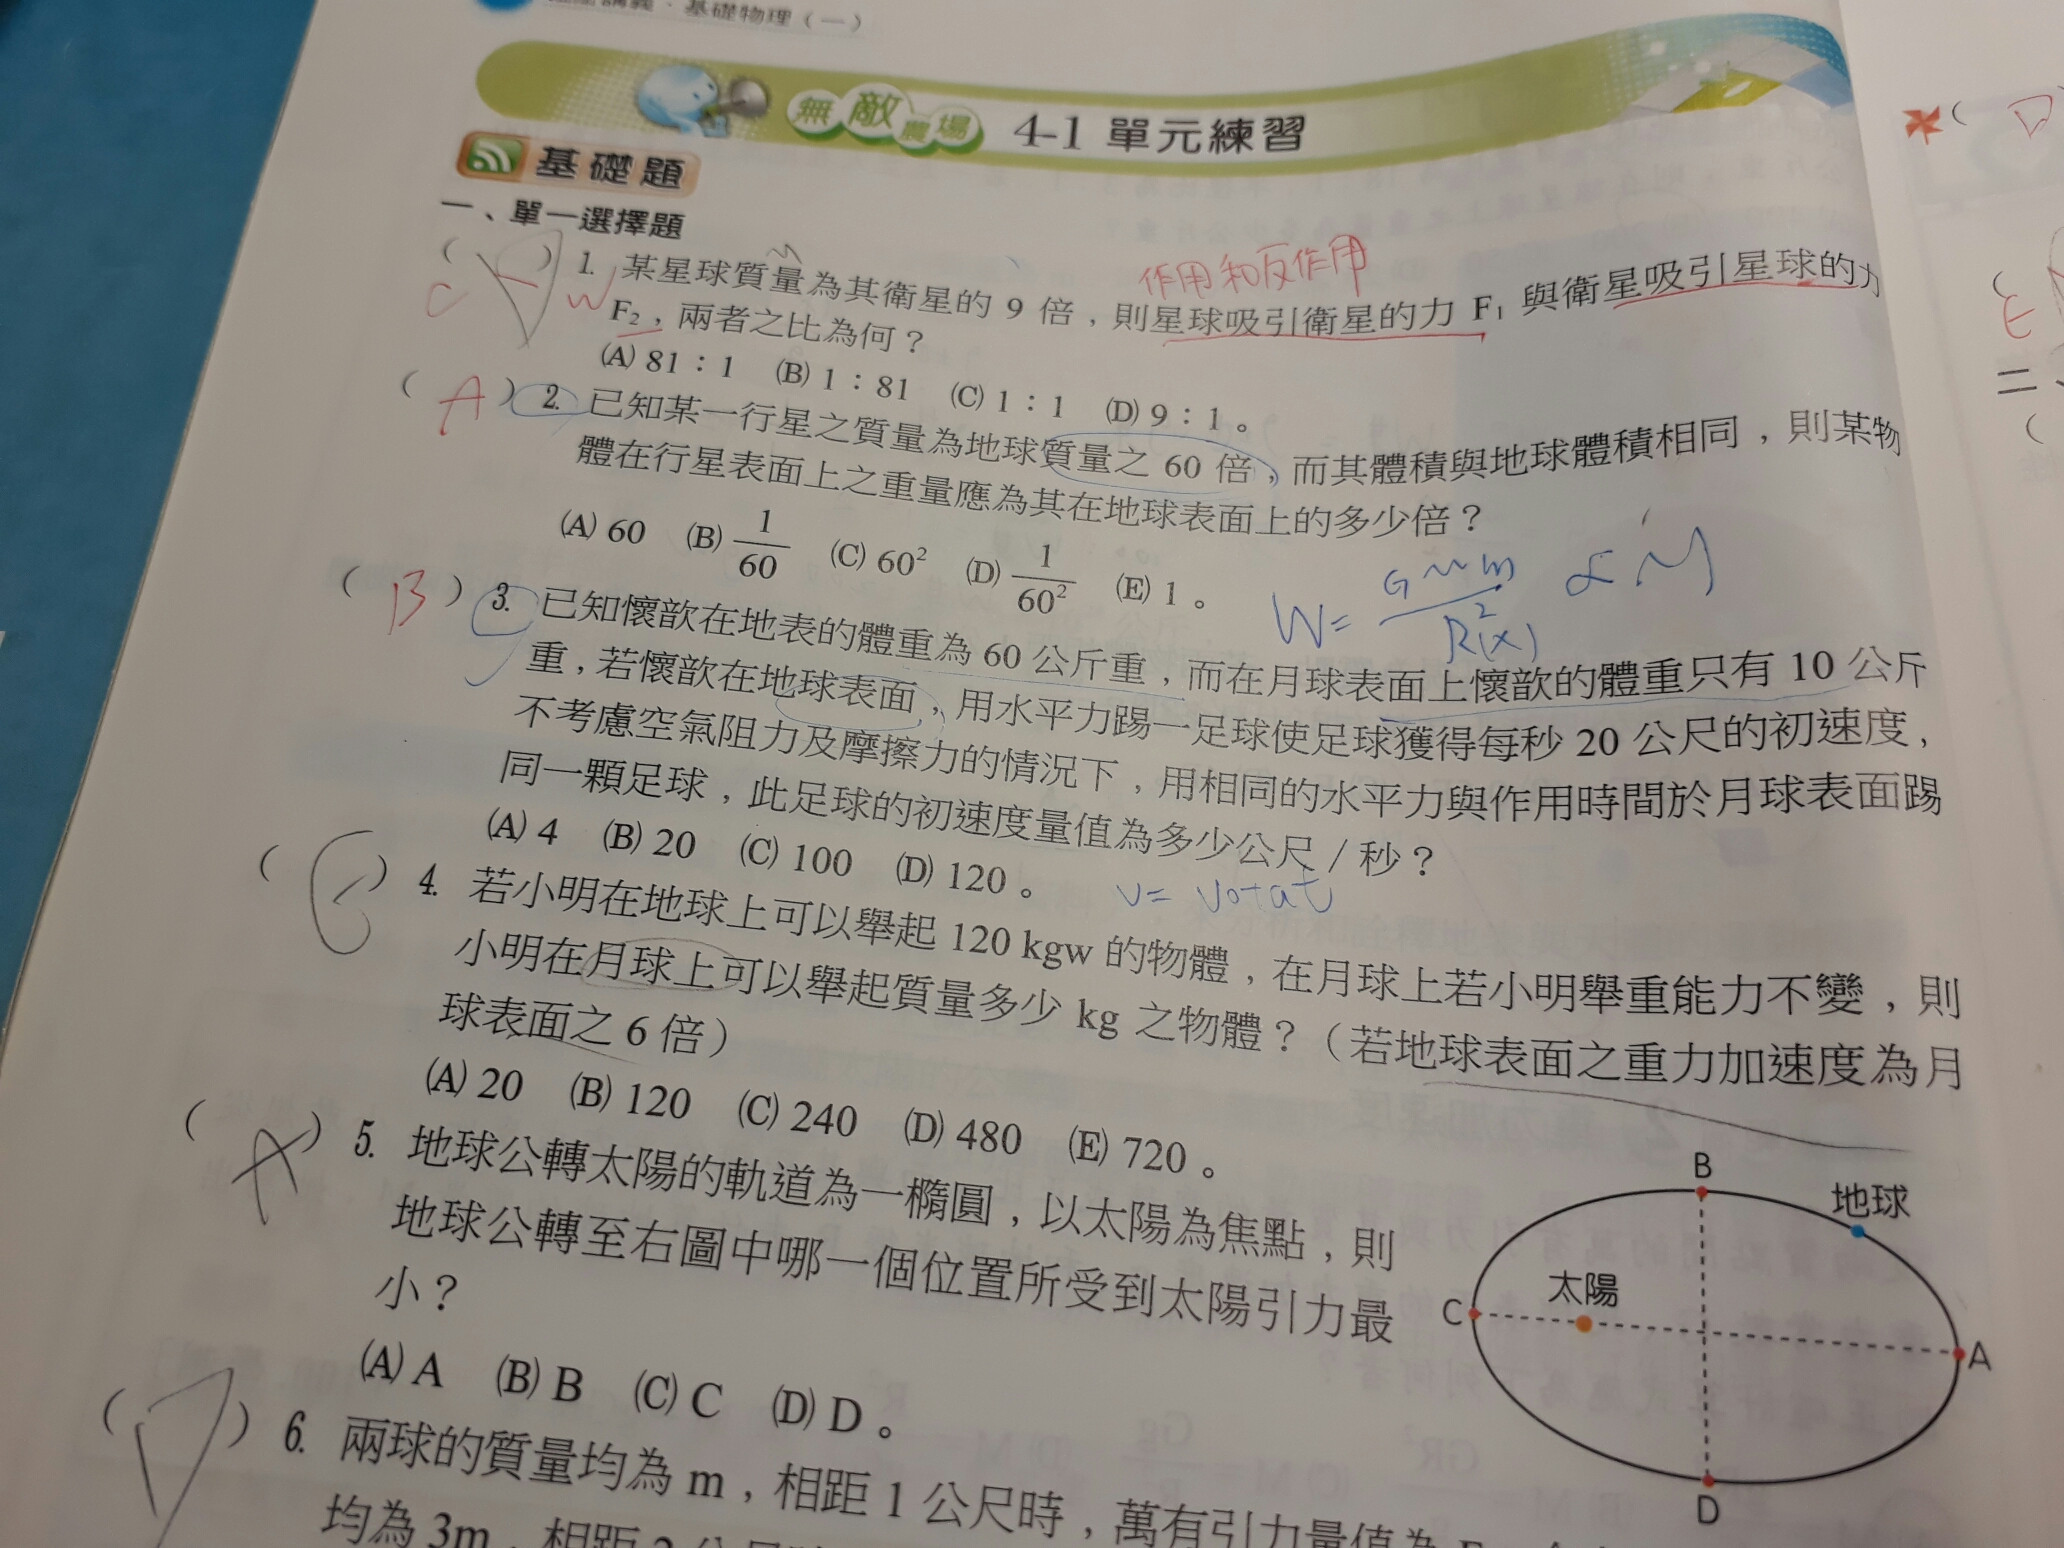 講義·基礎物理(一)
無敵農場 4-1 單元練習
基礎題
一、單一選擇題
作用和反作用
( ) 1. 某星球質量為其衛星的 9 倍，則星球吸引衛星的力 F₁ 與衛星吸引星球的力
C
F₂，兩者之比為何？
(A) 81：1 (B) 1：81 (C) 1：1 (D) 9：1。
( A ) 2. 已知某一行星之質量為地球質量之 60 倍，而其體積與地球體積相同，則某物
體在行星表面上之重量應為其在地球表面上的多少倍？
(A) 60 (B) 1/60 (C) 60² (D) 1/60² (E) 1。
( B ) 3. 已知懷歆在地表的體重為 60 公斤重，而在月球表面上懷歆的體重只有 10 公斤
重，若懷歆在地球表面，用水平力踢一足球使足球獲得每秒 20 公尺的初速度，
不考慮空氣阻力及摩擦力的情況下，用相同的水平力與作用時間於月球表面踢
同一顆足球，此足球的初速度量值為多少公尺／秒？
(A) 4 (B) 20 (C) 100 (D) 120。
V= V0+at
( ) 4. 若小明在地球上可以舉起 120 kgw 的物體，在月球上若小明舉重能力不變，則
小明在月球上可以舉起質量多少 kg 之物體？（若地球表面之重力加速度為月
球表面之 6 倍）
(A) 20 (B) 120 (C) 240 (D) 480 (E) 720。
( A ) 5. 地球公轉太陽的軌道為一橢圓，以太陽為焦點，則
地球公轉至右圖中哪一個位置所受到太陽引力最
小？
(A) A (B) B (C) C (D) D。
B
地球
太陽
C
A
D
( D ) 6. 兩球的質量均為 m，相距 1 公尺時，萬有引力量值為
均為 3m，相距
D
E
二、